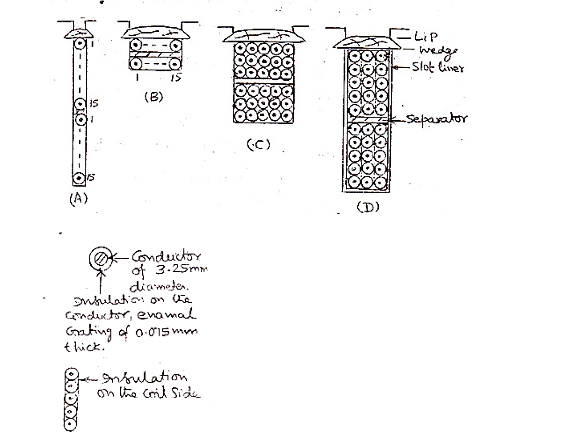 LiP
wedge
Slot liner
Separator
1
15
1
15
(A)
1 15
(B)
(C)
(D)
Conductor
of 3.25mm
diameter.
Insulation on the
Conductor, enamal
Coating of 0.075mm
thick.
Insulation
on the Coil Side